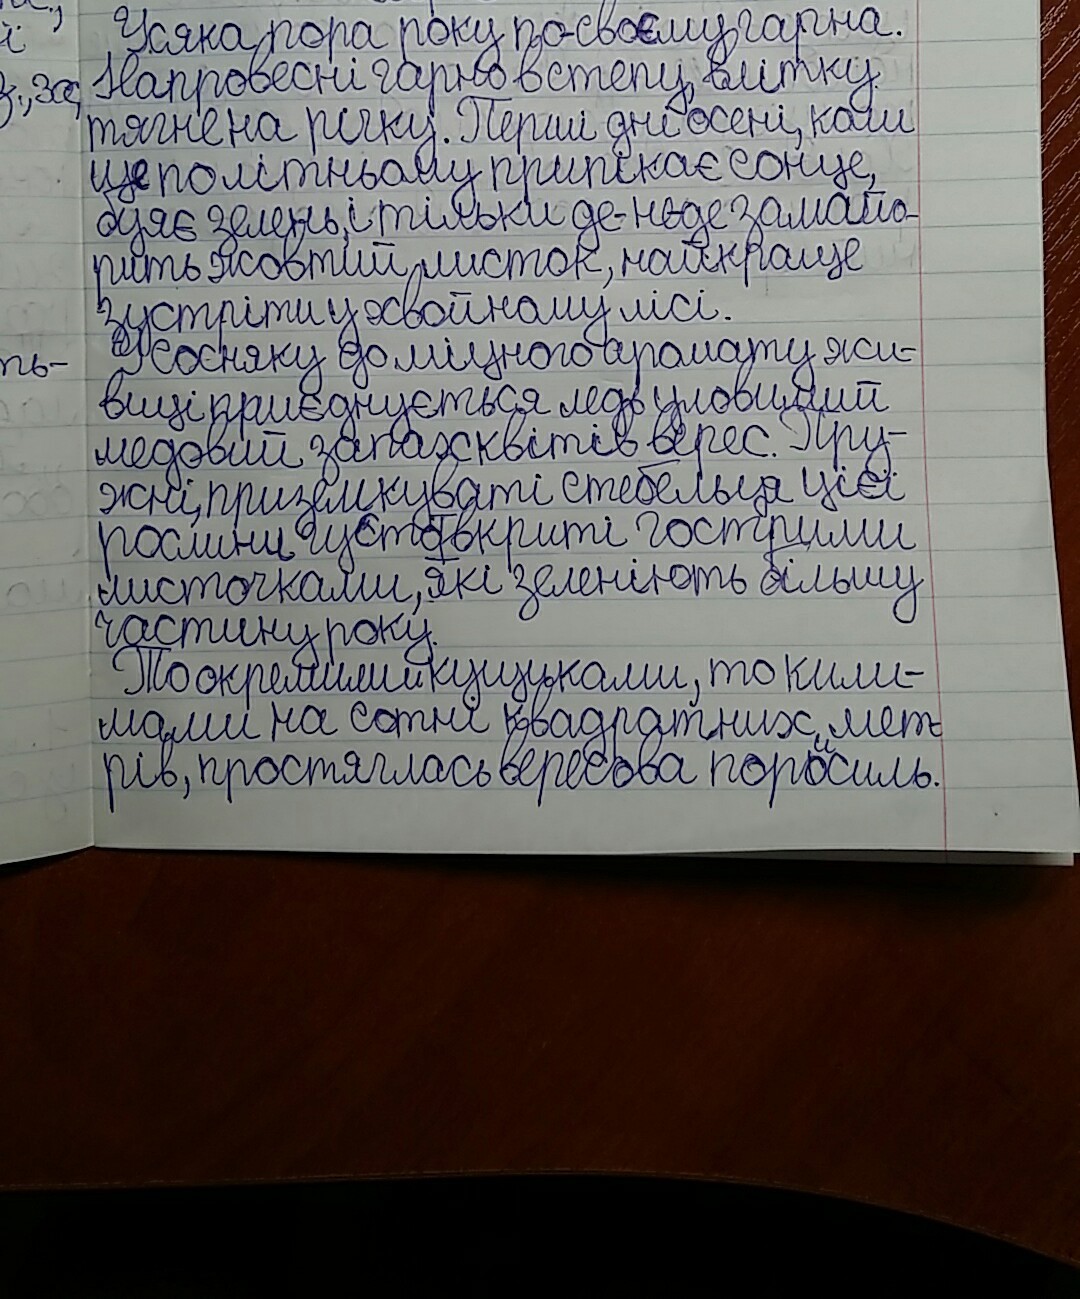 Усяка пора року по-своєму гарна.
Напровесні гарно в степу, влітку
тягне на річку. Перші дні осені, коли
ще по літньому припікає сонце,
буяє зелень, і тільки де-не-де замайо-
рить жовтий листок, найкраще
зустріти у хвойному лісі.
У сосняку до міцного аромату жи-
виці приєднується ледь уловимий
медовий запах квітів верес. Пру-
жні, приземкуваті стебельця цієї
рослини густо вкриті гострими
листочками, які зеленіють більшу
частину року.
То окремими кущиками, то кили-
мами на сотні квадратних мет-
рів, простяглась вересова поросиль.
з, за,
ть-